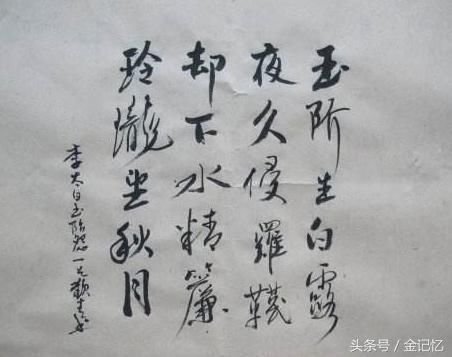 玉阶生白露
夜久侵羅韈
却下水精簾
玲瓏坐秋月
李太白玉阶怨一首
头条号 / 金记忆